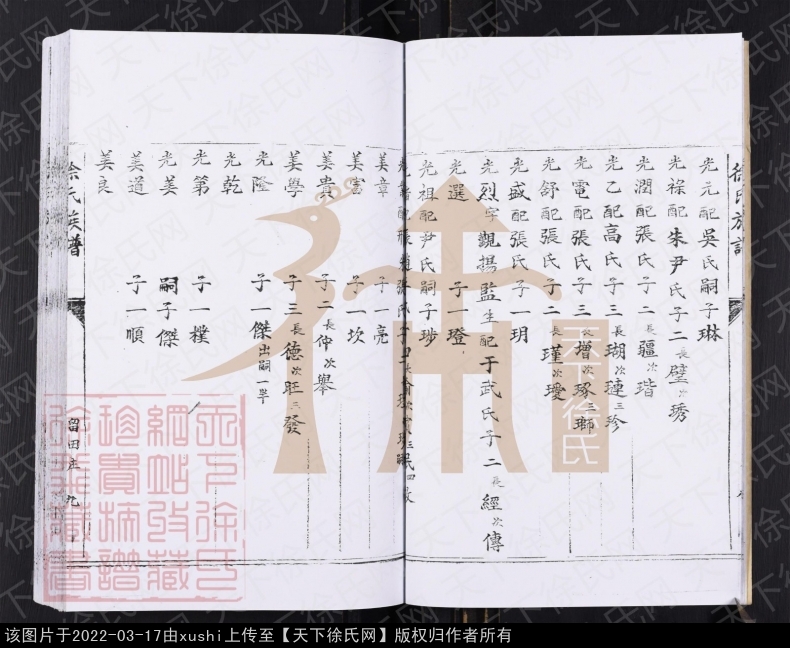 徐氏族譜
光元 配吳氏 嗣子琳
光祿 配朱尹氏 子二 長璧 次琇
光潤 配張氏 子二 長疆 次瑎
光乙 配高氏 子三 長瑚 次璉 三珍
光電 配張氏 子三 長增 次琢 三瑯
光舒 配張氏 子二 長瑾 次璦
光盛 配張氏 子一玥
光烈 字觀揚 監生 配于武氏 子二 長經 次傳
光選 子一璒
光祖 配尹氏 嗣子琇
美章 子一亮
美富 子一坎
美貴 子二 長仲 次舉
美學 子三 長德 次旺 三發
光隆 子一傑 出嗣
光乾
光第 子一樸
光美 嗣子傑
美道 子一順
美良
徐氏族譜
留田庄 九
天下徐氏
天下徐氏网
该图片于2022-03-17由xushi上传至【天下徐氏网】版权归作者所有